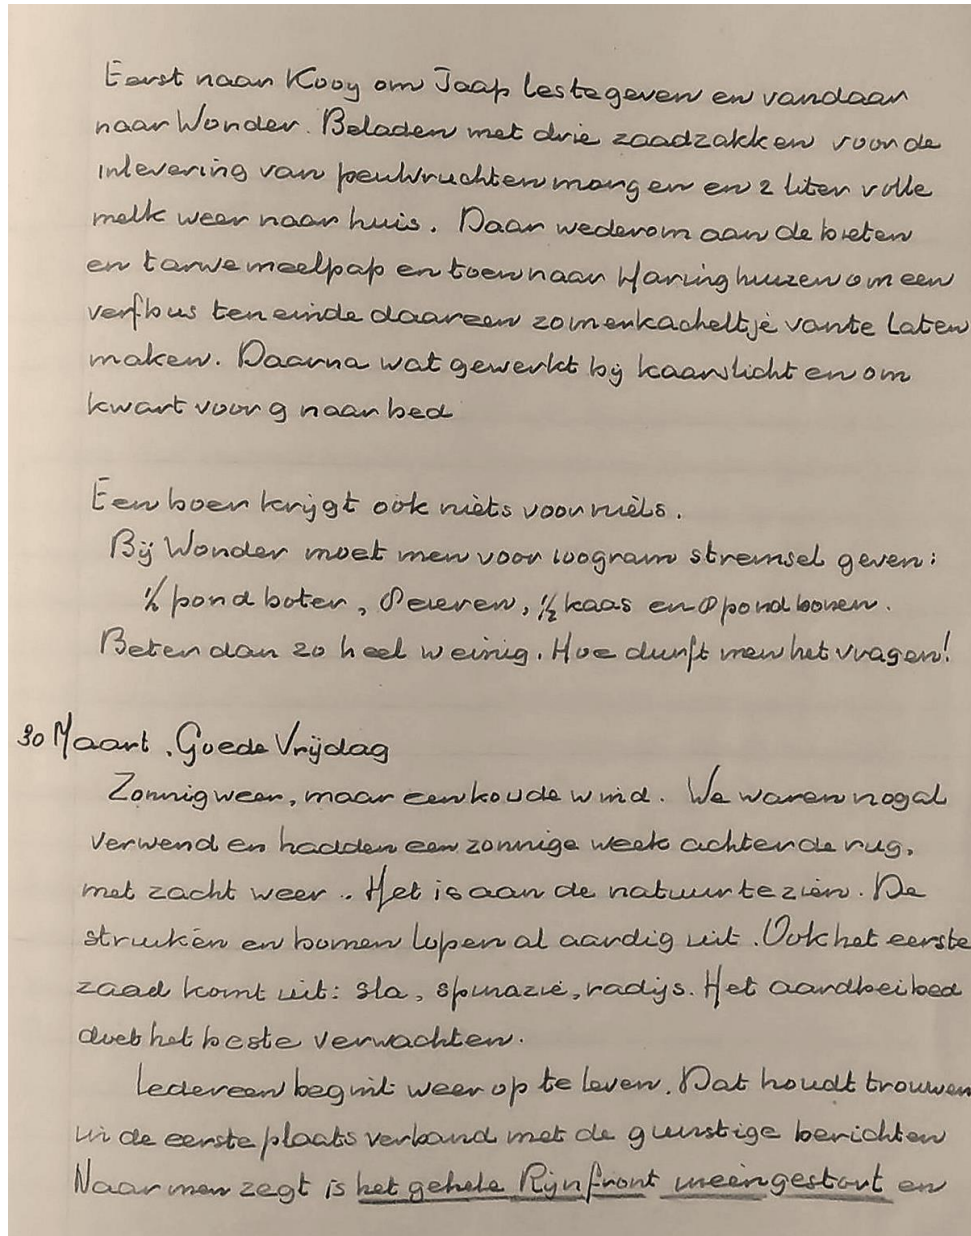 Eerst naar Kooy om Jaap les te geven en vandaar
naar Wonder. Beladen met drie zaadzakken voor de
inlevering van peulvruchten morgen en 2 liter volle
melk weer naar huis. Daar wederom aan de bieten
en tarwemeelpap en toen naar Haringhuizen om een
verfbus ten einde daar een zomerkacheltje van te laten
maken. Daarna wat gewerkt bij kaarslicht en om
kwart voor 9 naar bed
Een boer krijgt ook niets voor niets.
Bij Wonder moet men voor 100 gram stremsel geven:
1/2 pond boter, 8 eieren, 1/2 kaas en 8 pond bonen.
Beter dan zo heel weinig. Hoe durft men het vragen!
30 Maart. Goede Vrijdag
Zonnig weer, maar een koude wind. We waren nogal
verwend en hadden een zonnige week achter de rug,
met zacht weer.. Het is aan de natuur te zien. De
struiken en bomen lopen al aardig uit. Ook het eerste
zaad komt uit: sla, spinazie, radijs. Het aardbeibed
doet het beste verwachten.
Iedereen begint weer op te leven. Dat houdt trouwen
in de eerste plaats verband met de gunstige berichten
Naar men zegt is het gehele Rijnfront ineengestort en